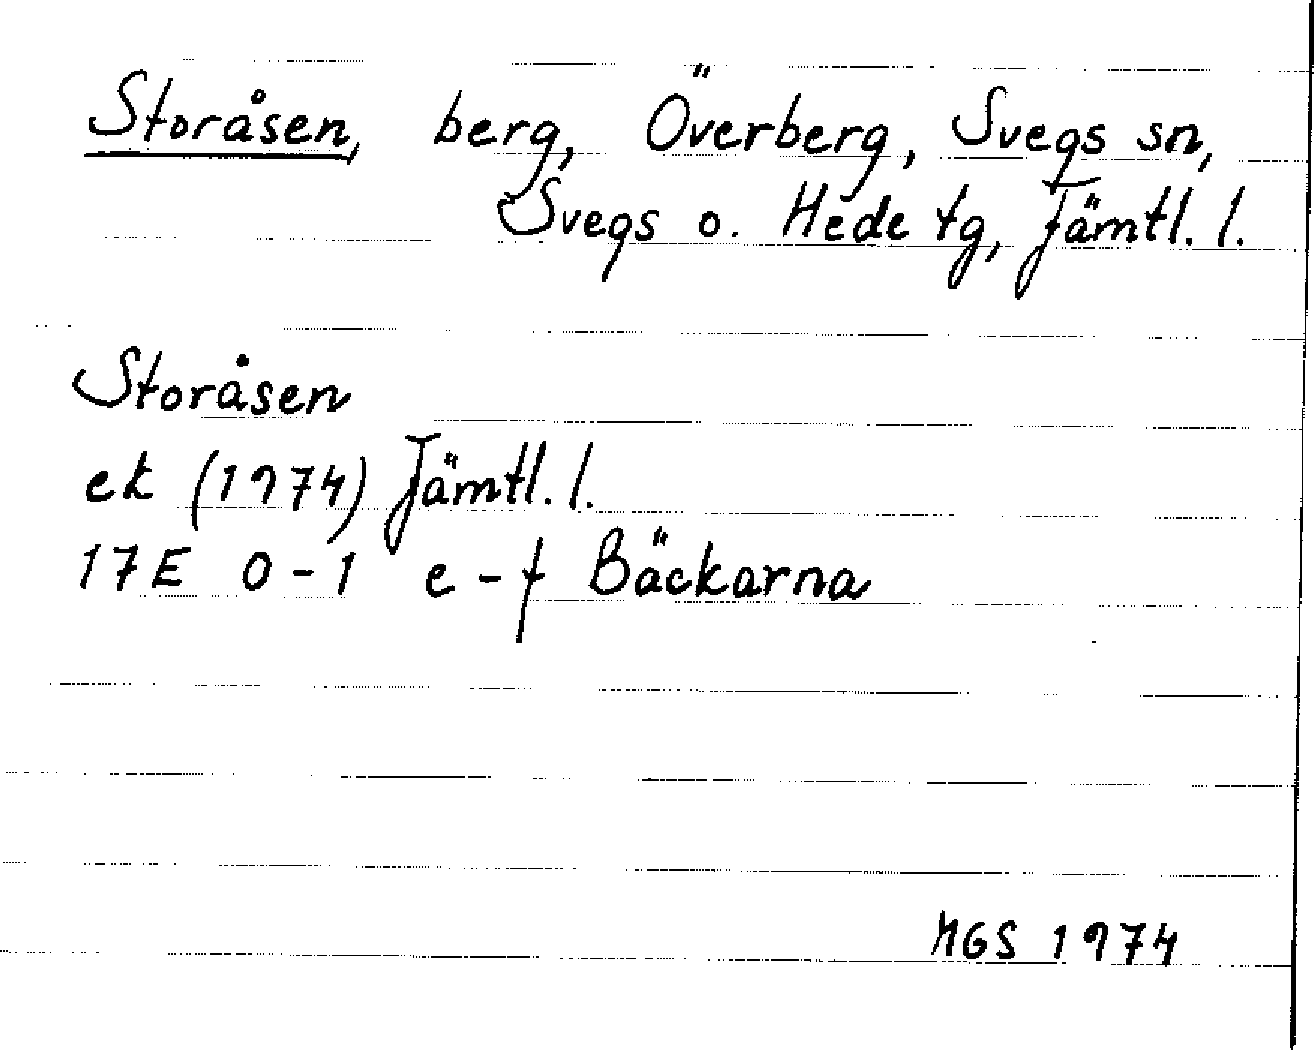 Storåsen, berg, Överberg, Svegs sn,
Svegs o. Hede tg, Jämtl. l.
Storåsen
ek (1974) Jämtl. l.
17E 0-1 e-f Bäckarna
MGS 1974